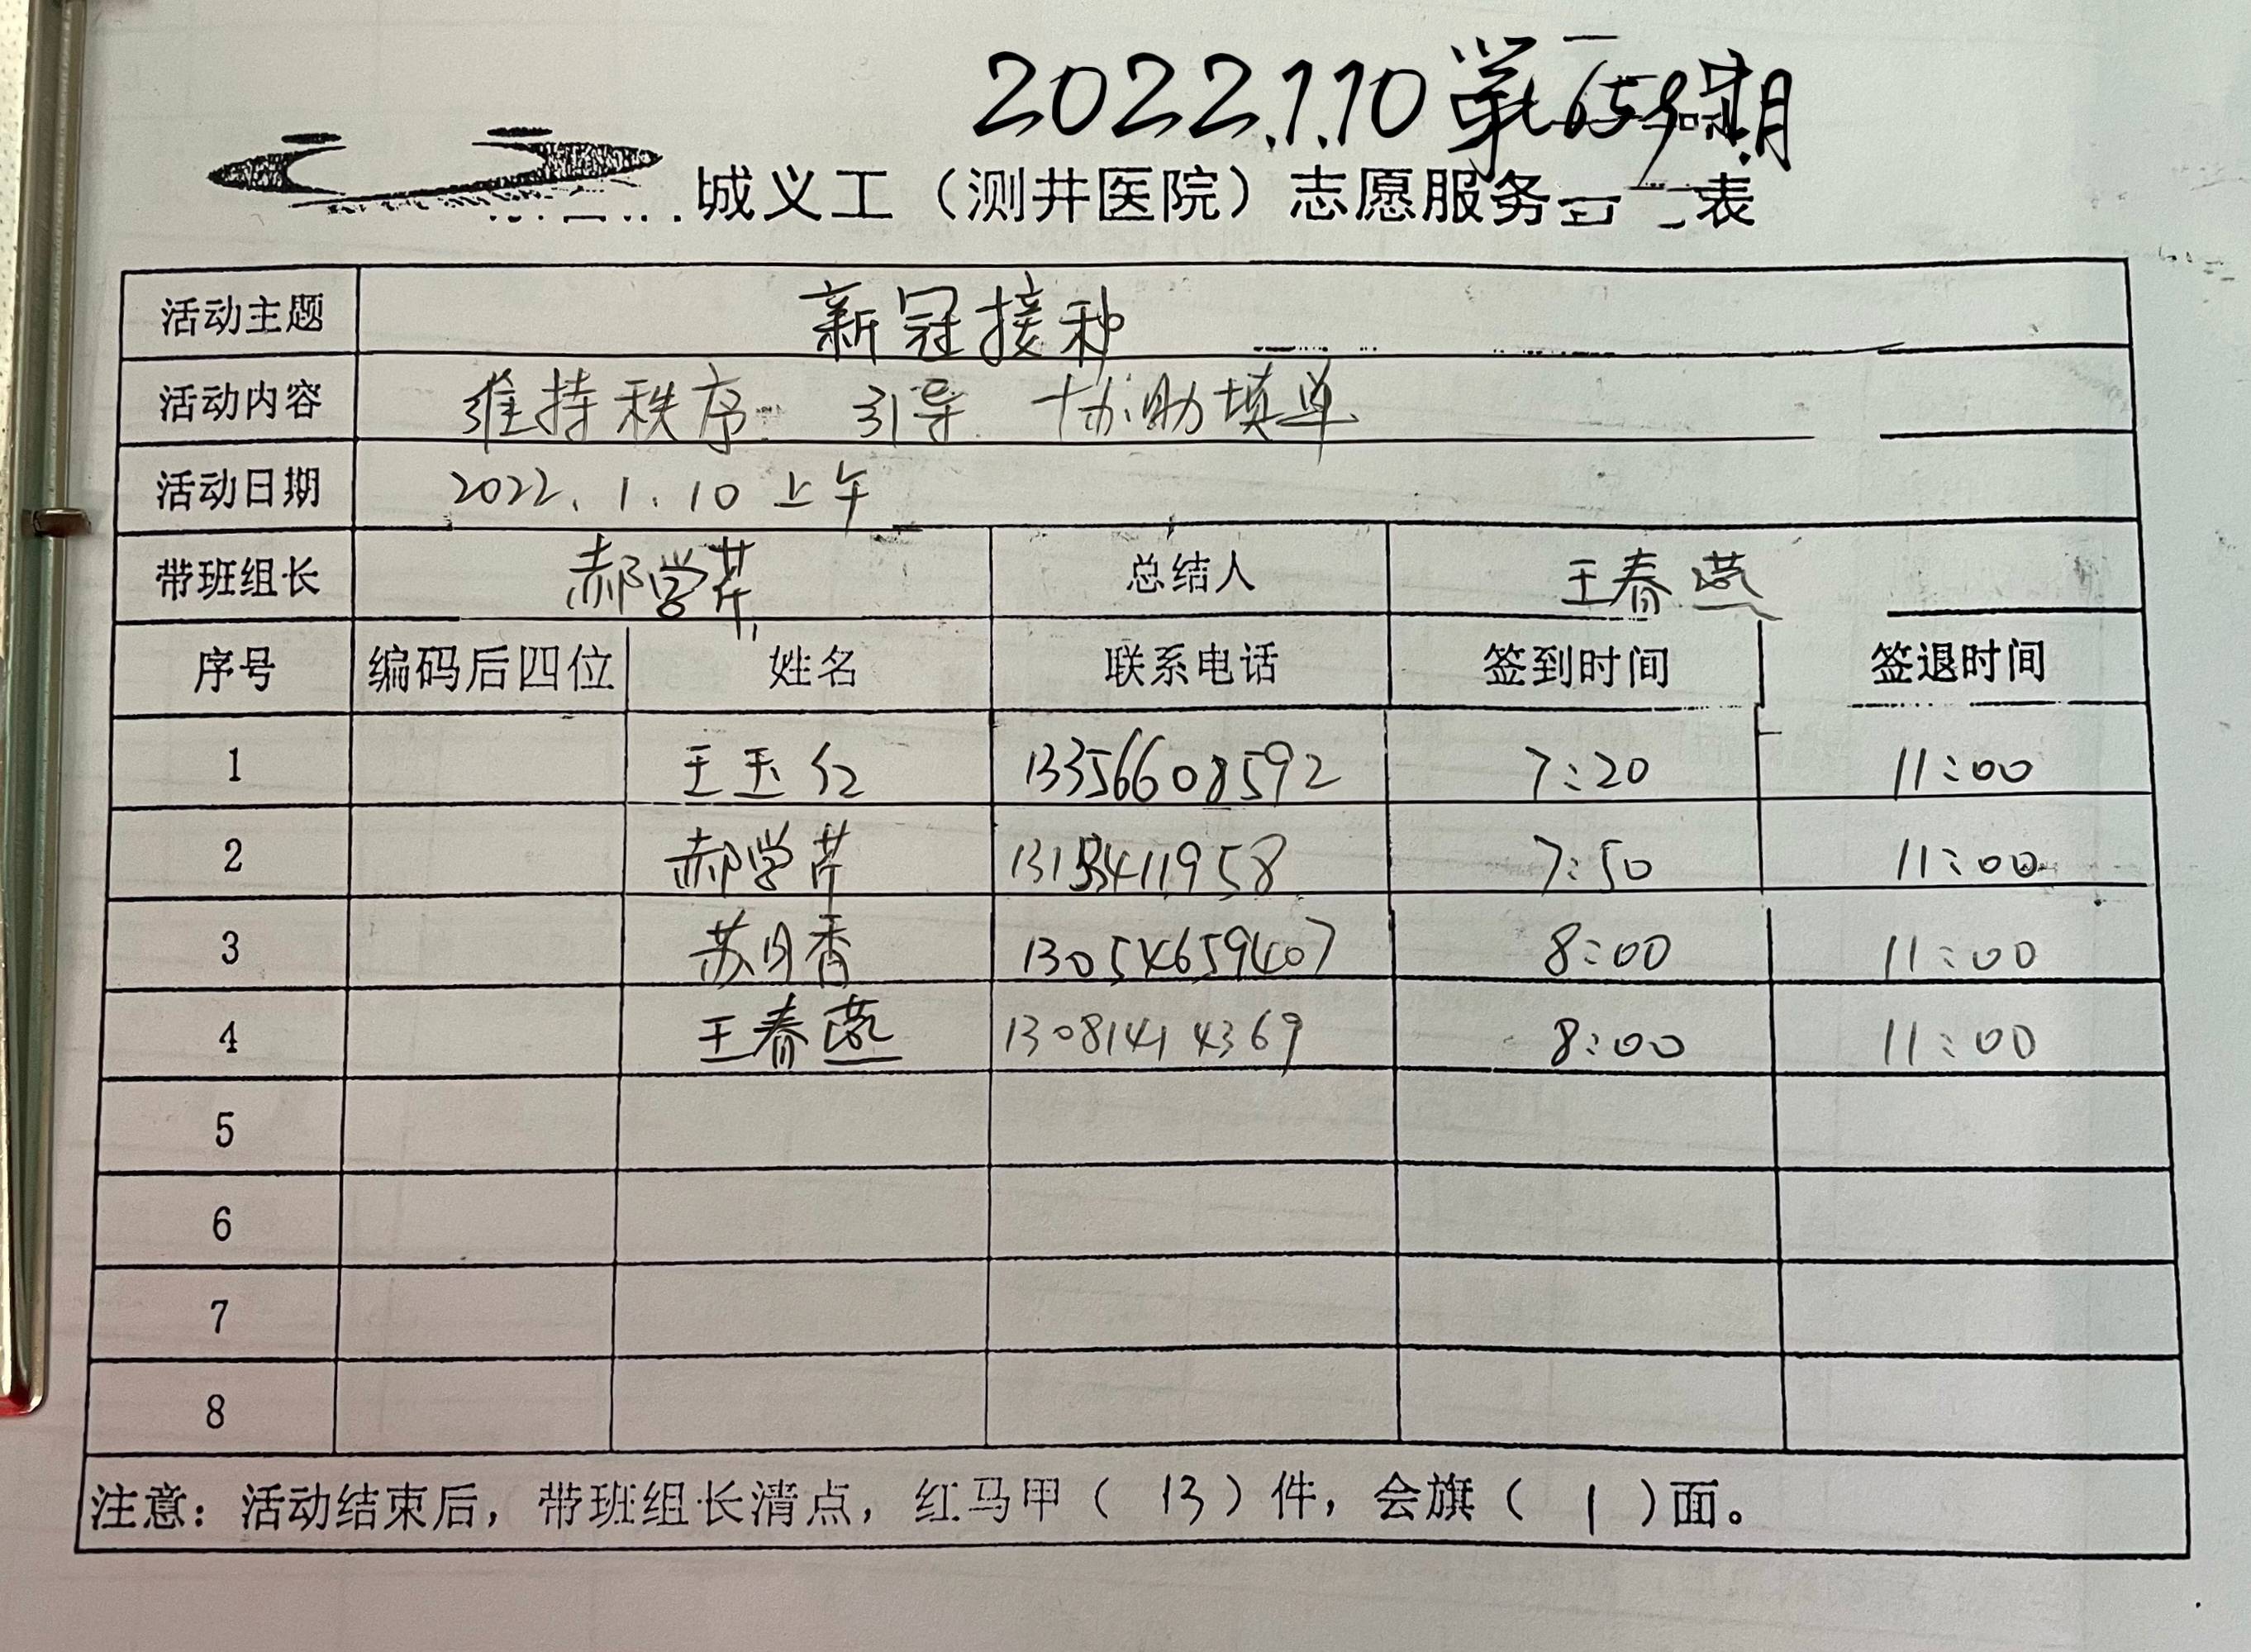 2022.1.10第659期
城义工（测井医院）志愿服务 表
活动主题 新冠接种
活动内容 维持秩序 引导 协助填单
活动日期 2022.1.10上午
带班组长 郝学芹 总结人 王春燕
序号 编码后四位 姓名 联系电话 签到时间 签退时间
1 王玉红 13356608592 7:20 11:00
2 郝学芹 7:50 11:00
3 苏月香 13054659407 8:00 11:00
4 王春燕 13081414369 8:00 11:00
5
6
7
8
注意：活动结束后，带班组长清点，红马甲（13）件，会旗（1）面。